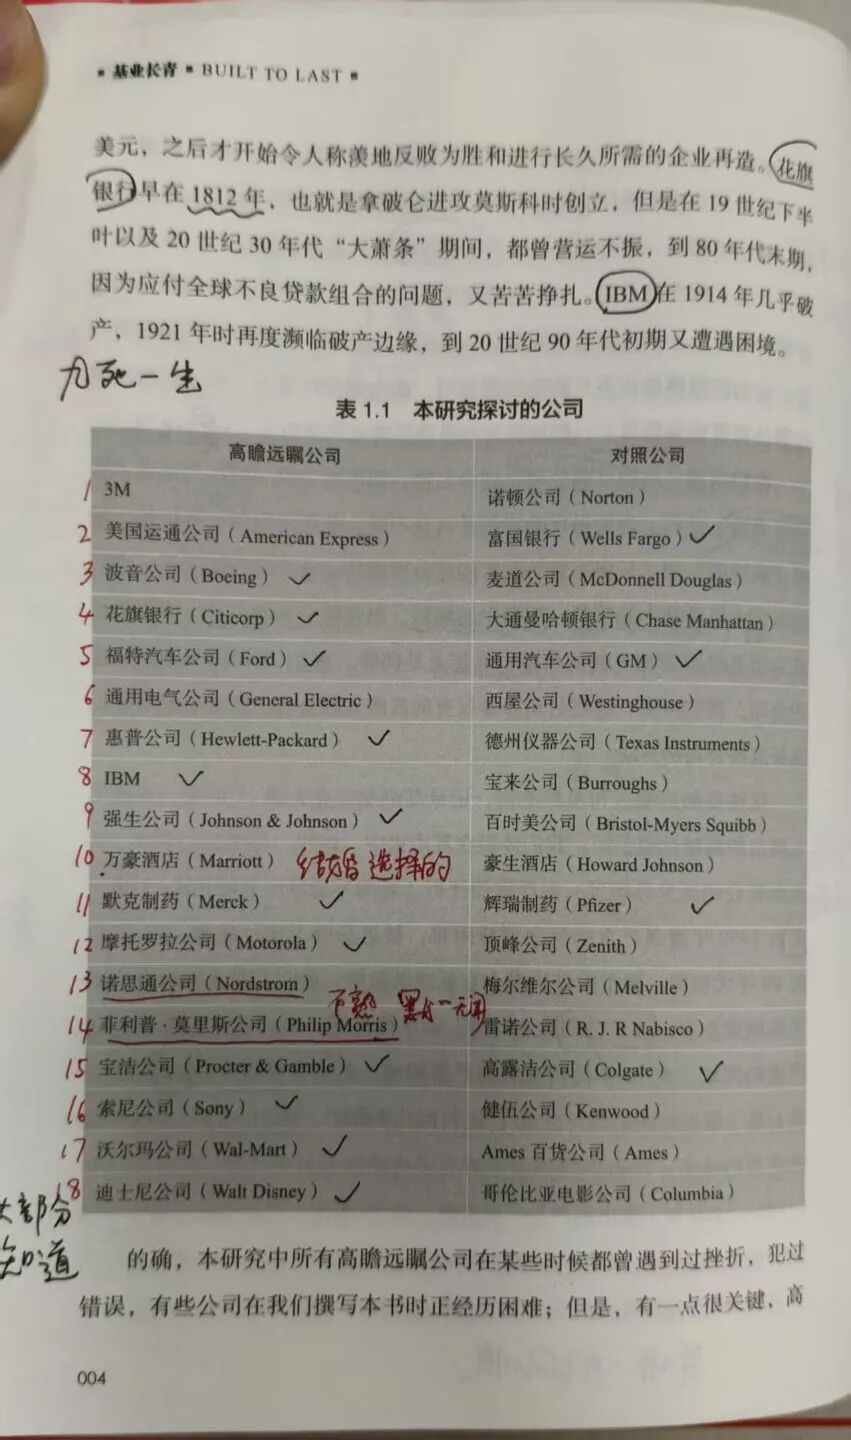 ▪ 基业长青 ▪ BUILT TO LAST ▪
美元，之后才开始令人称羡地反败为胜和进行长久所需的企业再造。花旗
银行早在 1812 年，也就是拿破仑进攻莫斯科时创立，但是在 19 世纪下半
叶以及 20 世纪 30 年代“大萧条”期间，都曾营运不振，到 80 年代末期，
因为应付全球不良贷款组合的问题，又苦苦挣扎。IBM 在 1914 年几乎破
产，1921 年时再度濒临破产边缘，到 20 世纪 90 年代初期又遭遇困境。
九死一生
表 1.1 本研究探讨的公司
高瞻远瞩公司 对照公司
1 3M 诺顿公司（Norton）
2 美国运通公司（American Express） 富国银行（Wells Fargo）✓
3 波音公司（Boeing）✓ 麦道公司（McDonnell Douglas）
4 花旗银行（Citicorp）✓ 大通曼哈顿银行（Chase Manhattan）
5 福特汽车公司（Ford）✓ 通用汽车公司（GM）✓
6 通用电气公司（General Electric） 西屋公司（Westinghouse）
7 惠普公司（Hewlett-Packard）✓ 德州仪器公司（Texas Instruments）
8 IBM ✓ 宝来公司（Burroughs）
9 强生公司（Johnson & Johnson）✓ 百时美公司（Bristol-Myers Squibb）
10 万豪酒店（Marriott） 结婚选择的 豪生酒店（Howard Johnson）
11 默克制药（Merck）✓ 辉瑞制药（Pfizer）✓
12 摩托罗拉公司（Motorola）✓ 顶峰公司（Zenith）
13 诺思通公司（Nordstrom） 不熟 梅尔维尔公司（Melville）
14 菲利普·莫里斯公司（Philip Morris） 雷诺公司（R. J. R Nabisco）
15 宝洁公司（Procter & Gamble）✓ 高露洁公司（Colgate）✓
16 索尼公司（Sony）✓ 健伍公司（Kenwood）
17 沃尔玛公司（Wal-Mart）✓ Ames 百货公司（Ames）
18 迪士尼公司（Walt Disney）✓ 哥伦比亚电影公司（Columbia）
大部分
知道
的确，本研究中所有高瞻远瞩公司在某些时候都曾遇到过挫折，犯过
错误，有些公司在我们撰写本书时正经历困难；但是，有一点很关键，高
004